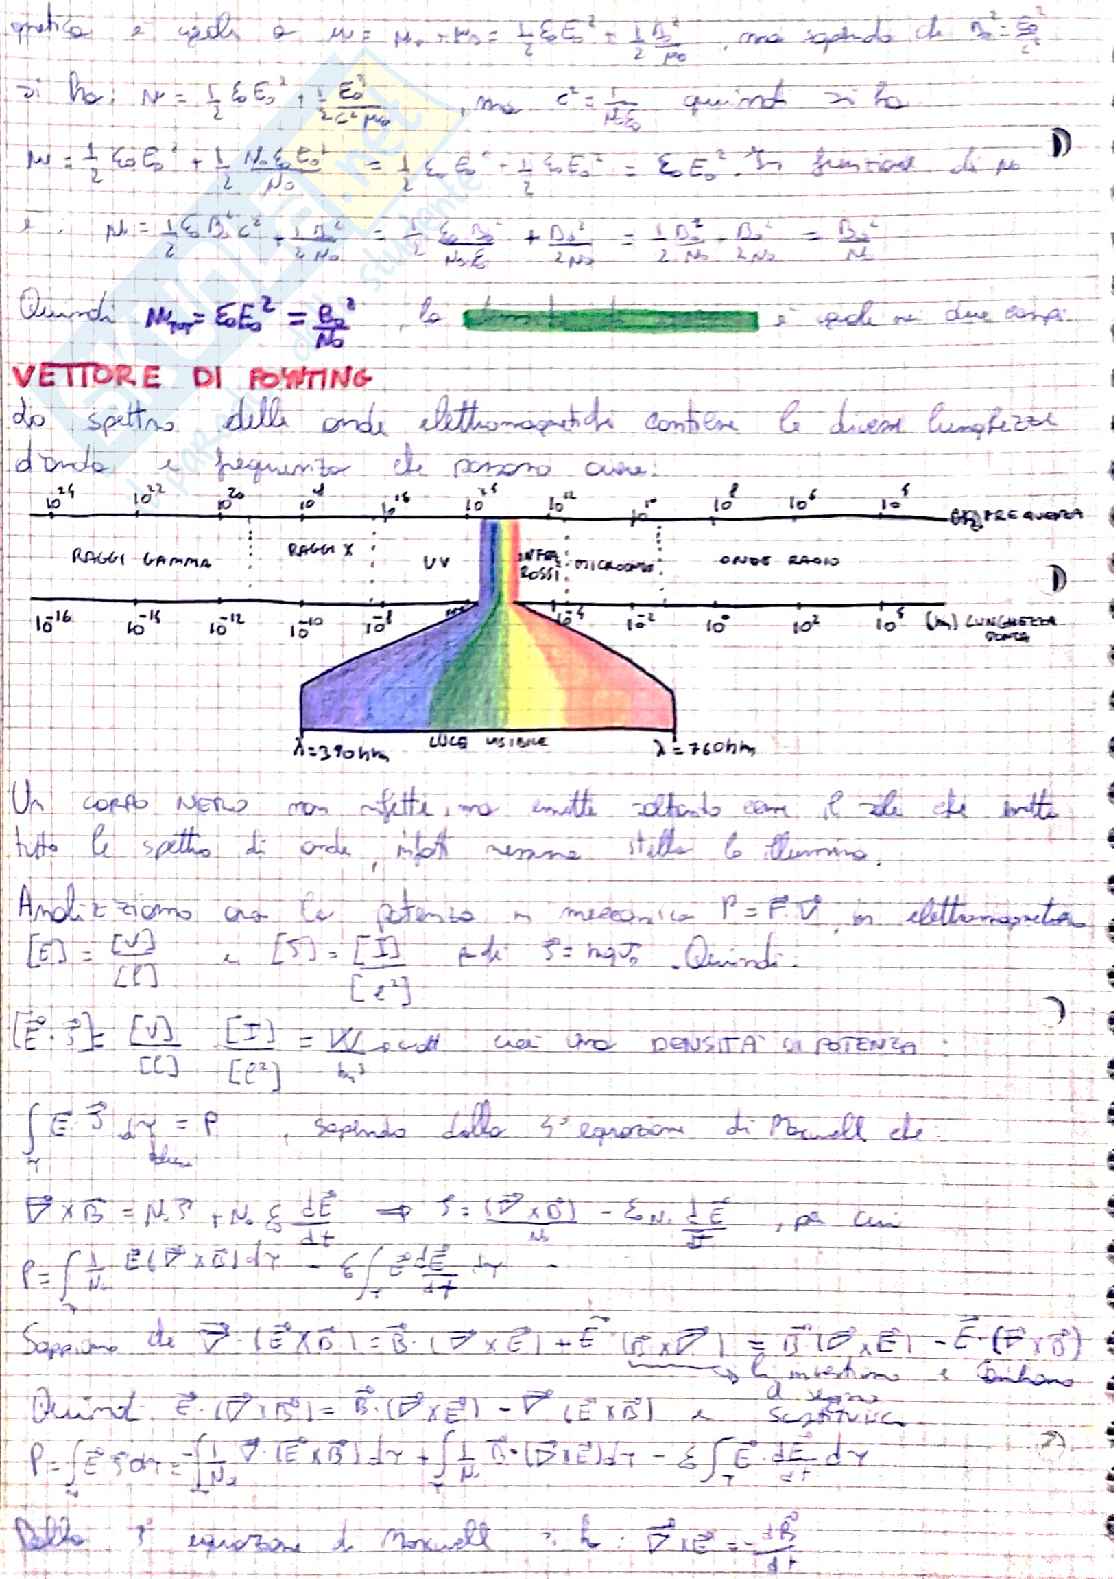 e uguale a u = u + u = 1/2 ε₀E₀² + 1/2 B₀²/μ₀, ma sapendo che B₀² = E₀²/c²
si ha: u = 1/2 ε₀E₀² + 1/2 E₀²/c²μ₀, ma c² = 1/μ₀ε₀ quindi si ha
u = 1/2 ε₀E₀² + 1/2 μ₀ε₀E₀²/μ₀ = 1/2 ε₀E₀² + 1/2 ε₀E₀² = ε₀E₀². In funzione di
u = 1/2 ε₀B₀²c² + 1/2 B₀²/μ₀ = 1/2 ε₀B₀²/μ₀ε₀ + B₀²/2μ₀ = 1/2 B₀²/μ₀ + B₀²/2μ₀ = B₀²/μ₀
Quindi u = ε₀E₀² = B₀²/μ₀, la è uguale nei due campi.
VETTORE DI POYNTING
Lo spettro delle onde elettromagnetiche contiene le diverse lunghezze
d'onda e frequenza che possono avere.
10²⁴ 10²² 10²⁰ 10¹⁸ 10¹⁶ 10¹⁵ 10¹² 10¹⁰ 10⁸ 10⁶ (Hz) FREQUENZA
RAGGI GAMMA RAGGI X UV INFRA ROSSI MICROONDE ONDE RADIO
10⁻¹⁶ 10⁻¹⁴ 10⁻¹² 10⁻¹⁰ 10⁻⁸ 10⁻⁴ 10⁻² 10⁰ 10² (m) LUNGHEZZA
D'ONDA
λ=390nm LUCE VISIBILE λ=760nm
Un CORPO NERO non riflette, ma emette soltanto come il sole che emette
tutto lo spettro di onde, infatti nessuna stella lo illumina.
Analizziamo ora la potenza in meccanica P = F·v, in elettromagnetismo
[E] = [V]/[l] e [J] = [I]/[l²] J = nqv. Quindi:
[E·J] = [V]/[l] [I]/[l²] = W/m³ cioè una DENSITÀ DI POTENZA:
∫ E·J dτ = P, sapendo dalla equazione di Maxwell che:
∇×B = μ₀J + μ₀ε₀ dE/dt ⇒ J = (∇×B)/μ₀ - ε₀ dE/dt, per cui
P = ∫ 1/μ₀ E(∇×B)dτ - ε₀∫ E dE/dt dτ
Sappiamo che ∇·(E×B) = B·(∇×E) + E·(B×∇) = B·(∇×E) - E·(∇×B)
lo invertiamo e cambiamo
di segno
Quindi E·(∇×B) = B·(∇×E) - ∇·(E×B) e
P = ∫E·J dτ = -∫1/μ₀ ∇·(E×B)dτ + ∫1/μ₀ B·(∇×E)dτ - ε₀∫E·dE/dt dτ
Dalla 3ª equazione di Maxwell si ha: ∇×E = -dB/dt